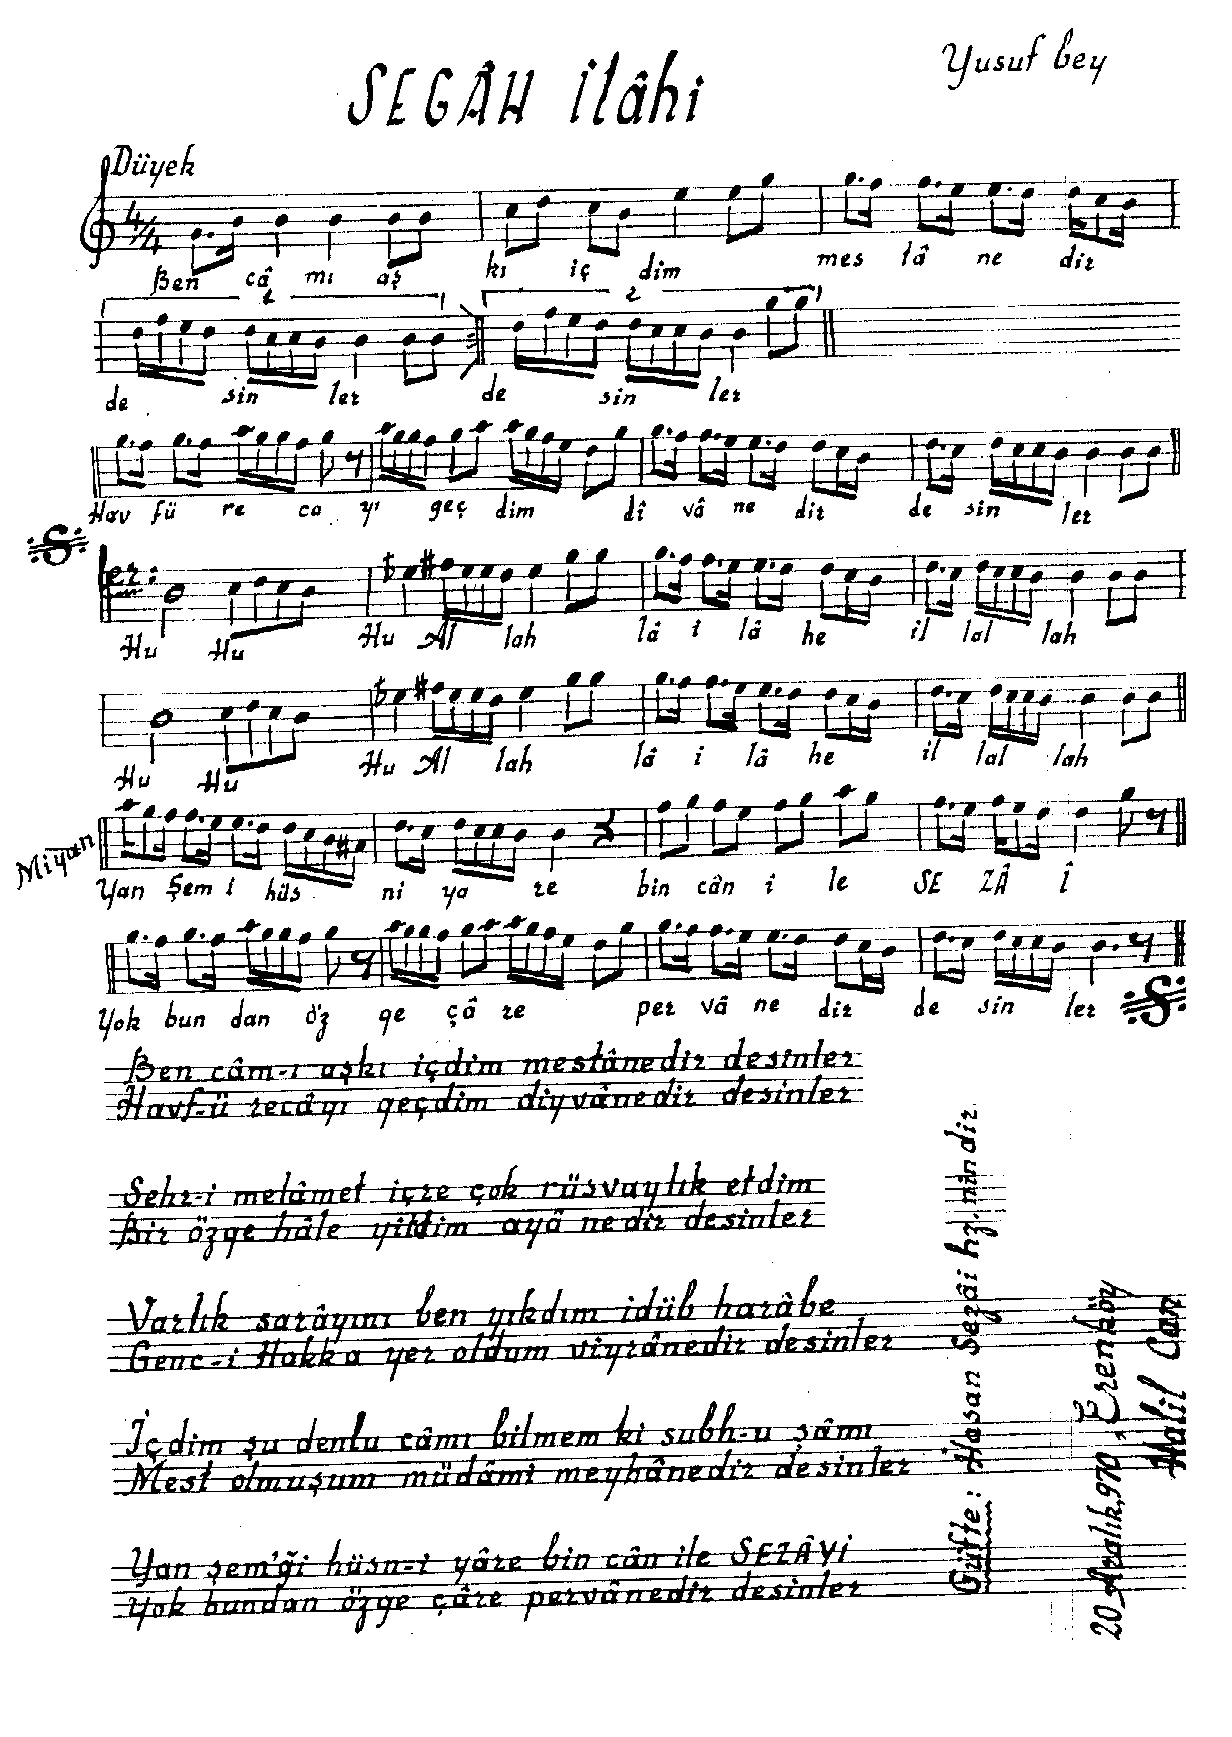 SEGÂH ilâhi
Yusuf bey
Düyek
Ben câ mı aş kı iç dim mes tâ ne dir
de sin ler de sin ler
Hav fü re ca yı geç dim dî vâ ne dir de sin ler
Ter:
Hu Hu Hu Al lah lâ i lâ he il lal lah
Hu Hu Hu Al lah lâ i lâ he il lal lah
Miyan
Yan Şem i hüs ni ya re bin cân i le SE ZÂ Î
Yok bun dan öz ge çâ re per vâ ne dir de sin ler
Ben câm-ı aşkı içdim mestânedir desinler
Havf-ü recâyı geçdim diyvânedir desinler
Şehr-i melâmet içre çok rüsvaylık etdim
Bir özge hâle yitdim ayâ nedir desinler
Varlık sarâyını ben yıkdım idüb harâbe
Genc-i Hakka yer oldum viyrânedir desinler
İçdim şu denlu câmı bilmem ki subh-u şâmı
Mest olmuşum müdâmi meyhânedir desinler
Yan şem'ği hüsn-i yâre bin cân ile SEZÂYİ
Yok bundan özge çâre pervânedir desinler
Güfte: Hasan Sezâi hz.nindir
20 Aralık,970, Erenköy
Halil Can